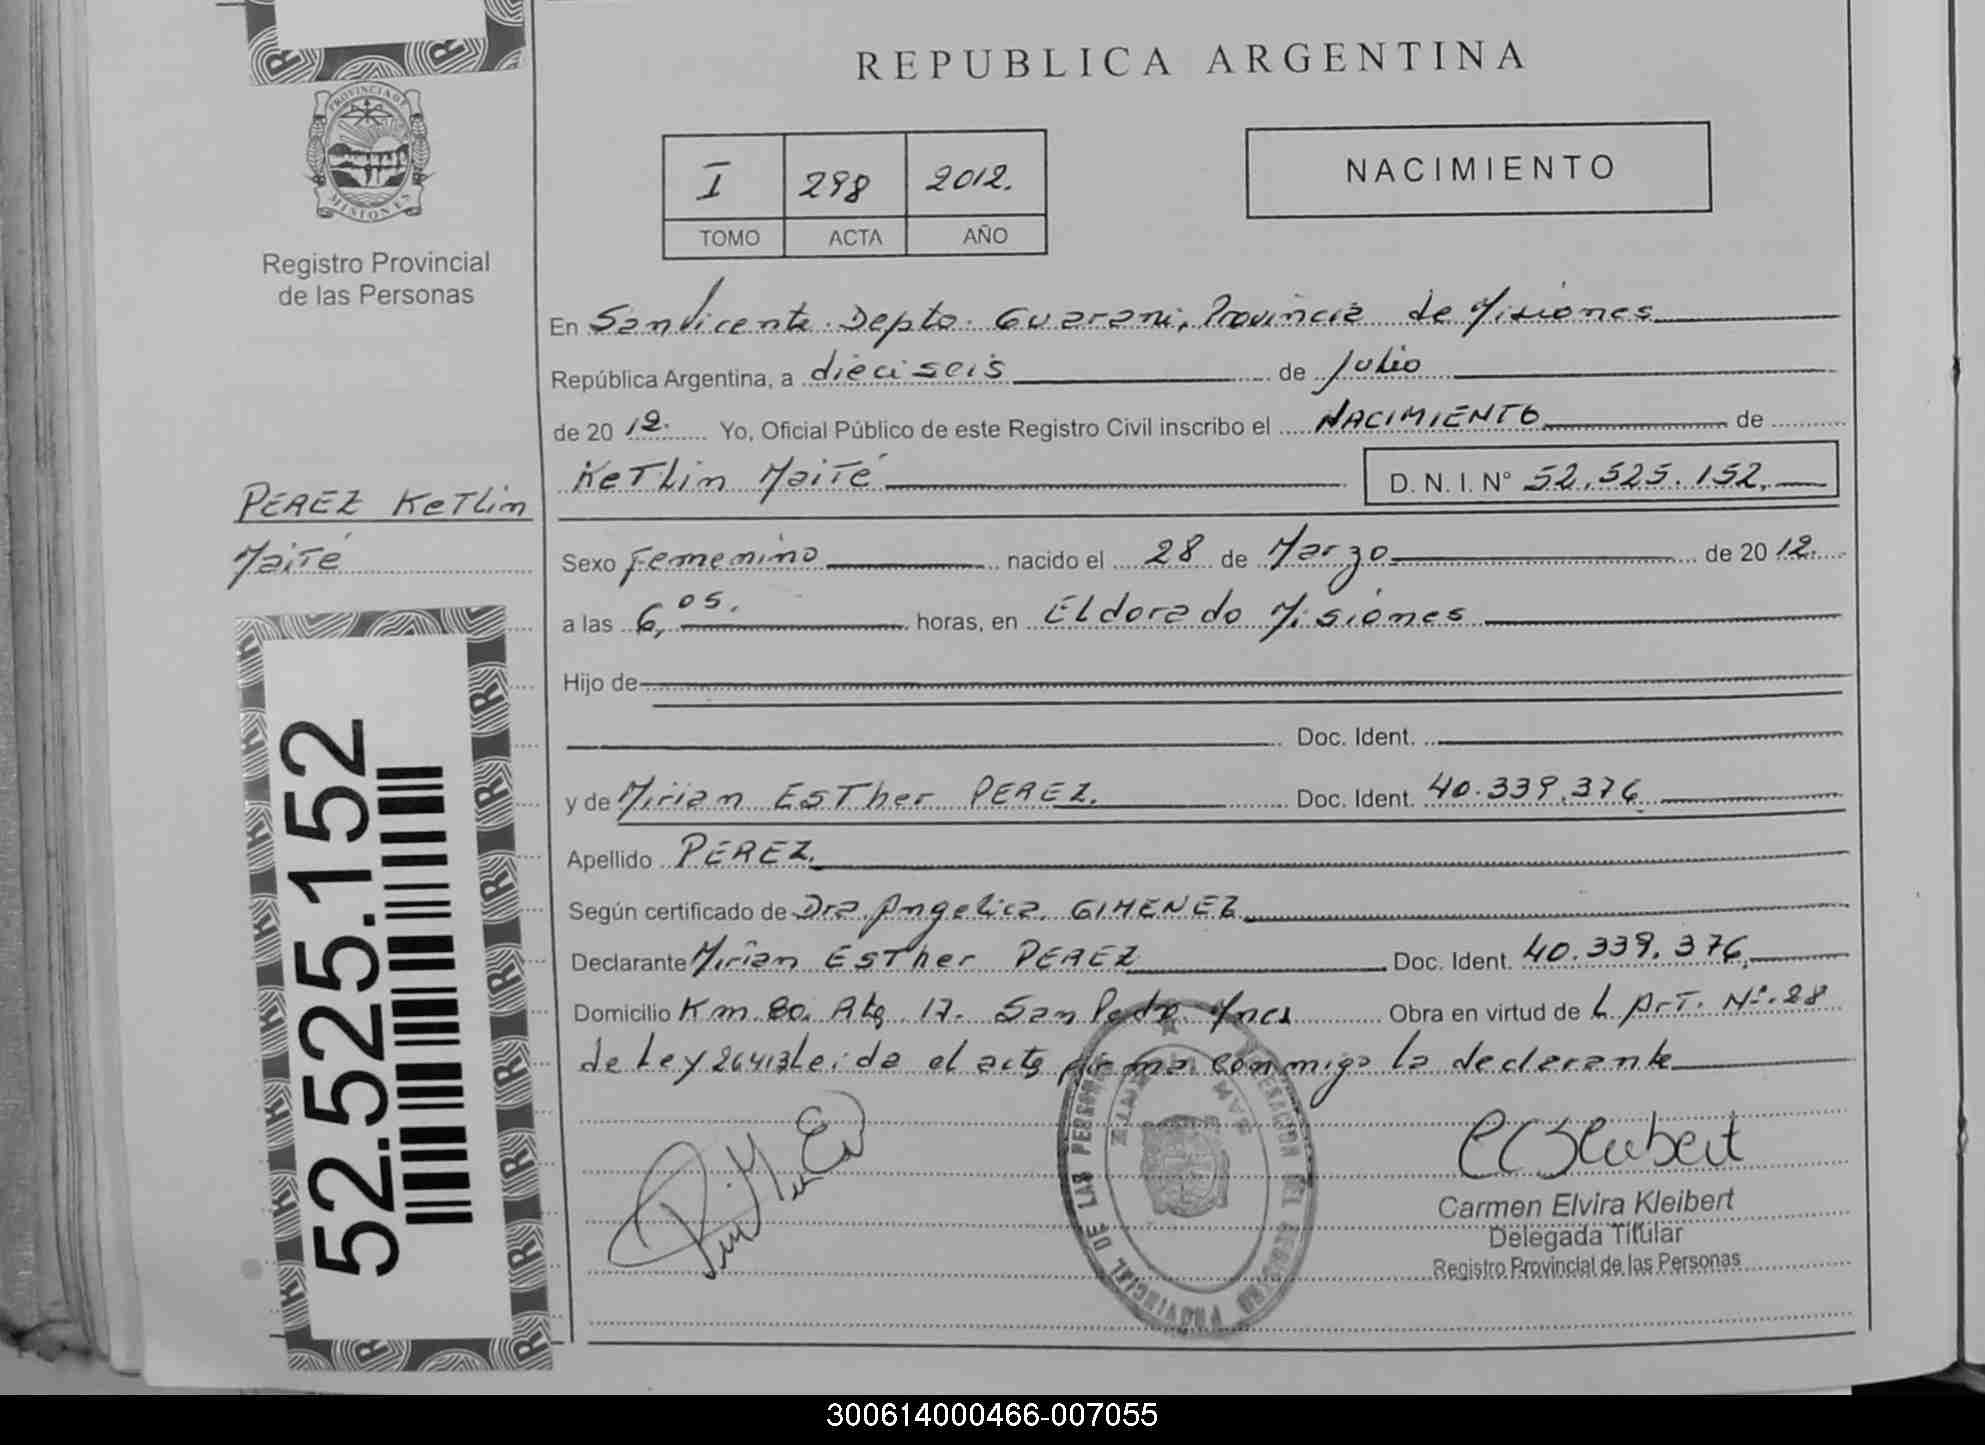 REPUBLICA ARGENTINA
PROVINCIA DE
MISIONES
Registro Provincial
de las Personas
I 298 2012.
TOMO ACTA AÑO
NACIMIENTO
En San Vicente. Depto. Guarani, Provincia de Misiones
República Argentina, a dieciseis de Julio
de 20 12. Yo, Oficial Público de este Registro Civil inscribo el NACIMIENTO de
Ketlin Maité D. N. I. N° 52.525.152.
PEREZ Ketlin
Maité
Sexo Femenino nacido el 28 de Marzo de 20 12.
a las 6,05. horas, en Eldorado Misiones
Hijo de
Doc. Ident.
y de Mirian Esther PEREZ. Doc. Ident. 40.339.376
Apellido PEREZ.
Según certificado de Dra. Angelica GIMENEZ
Declarante Mirian Esther PEREZ Doc. Ident. 40.339.376,
Domicilio Km 80. San Pedro Mnes Obra en virtud de L Art. Nº.28
de Ley 26413 Leida el acta firma conmigo la declarante
52.525.152
Carmen Elvira Kleibert
Delegada Titular
Registro Provincial de las Personas
PROVINCIAL DE LAS PERSONAS
300614000466-007055